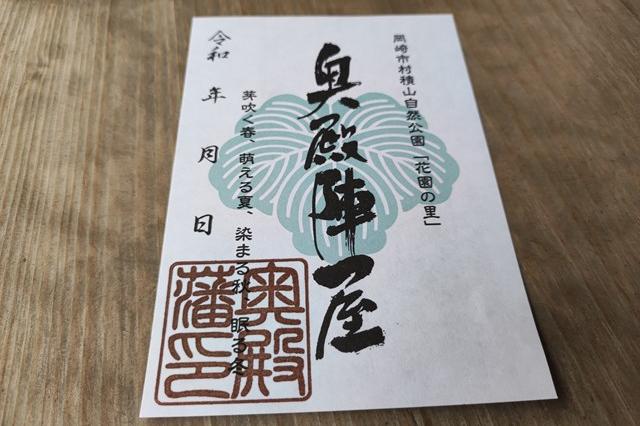 岡崎市村積山自然公園「花園の里」
奥殿陣屋
芽吹く春、萌える夏、染まる秋、眠る冬
令和 年 月 日
奥殿
藩印